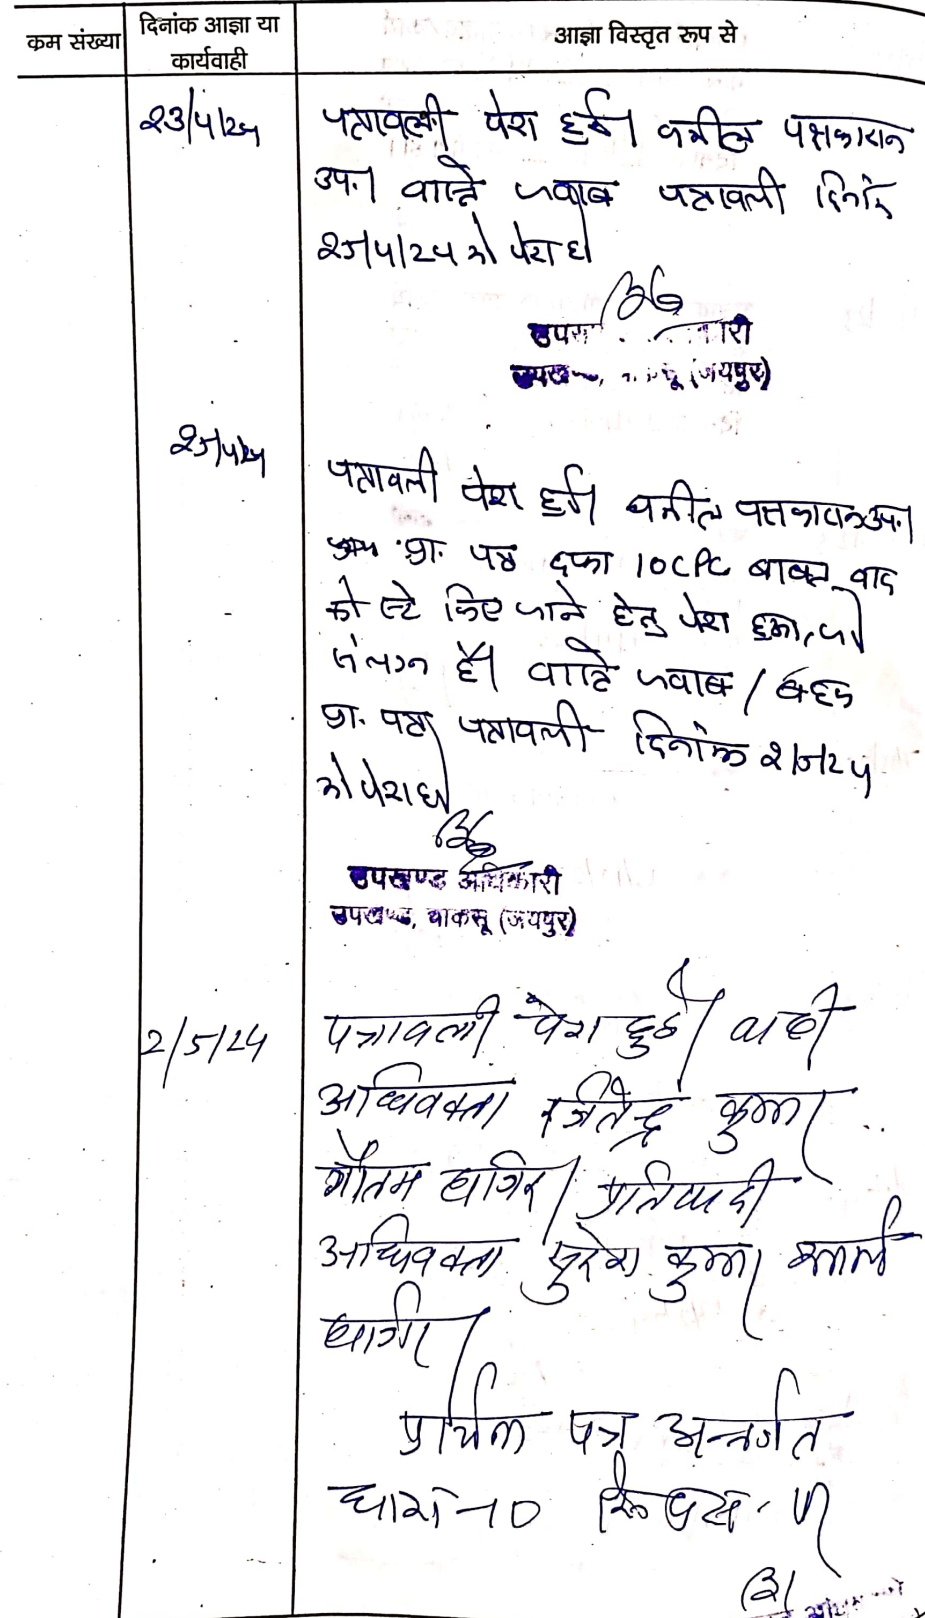 कम संख्या
दिनांक आज्ञा या
कार्यवाही
आज्ञा विस्तृत रूप से
23/4/24
पत्रावली पेश हुई। वकील पक्षकारान
उप.। वास्ते जवाब पत्रावली दिनांक
25/4/24 को पेश हो
उपखण्ड, (जयपुर)
25/4/24
पत्रावली पेश हुई। वकील पक्षकारान उप.।
प्रा. पत्र दफा 10 CPC बाबत वाद
को स्टे किए जाने हेतु पेश हुआ, जो
संलग्न है। वास्ते जवाब / बहस
प्रा. पत्र पत्रावली दिनांक 2/5/24
को पेश हो
उपखण्ड अधिकारी
उपखण्ड, चाकसू (जयपुर)
2/5/24
पत्रावली पेश हुई। वादी
अधिवक्ता जितेन्द्र कुमार
गौतम हाजिर। प्रतिवादी
अधिवक्ता सुरेश कुमार
हाजिर।
प्रार्थना पत्र अन्तर्गत
धारा-10